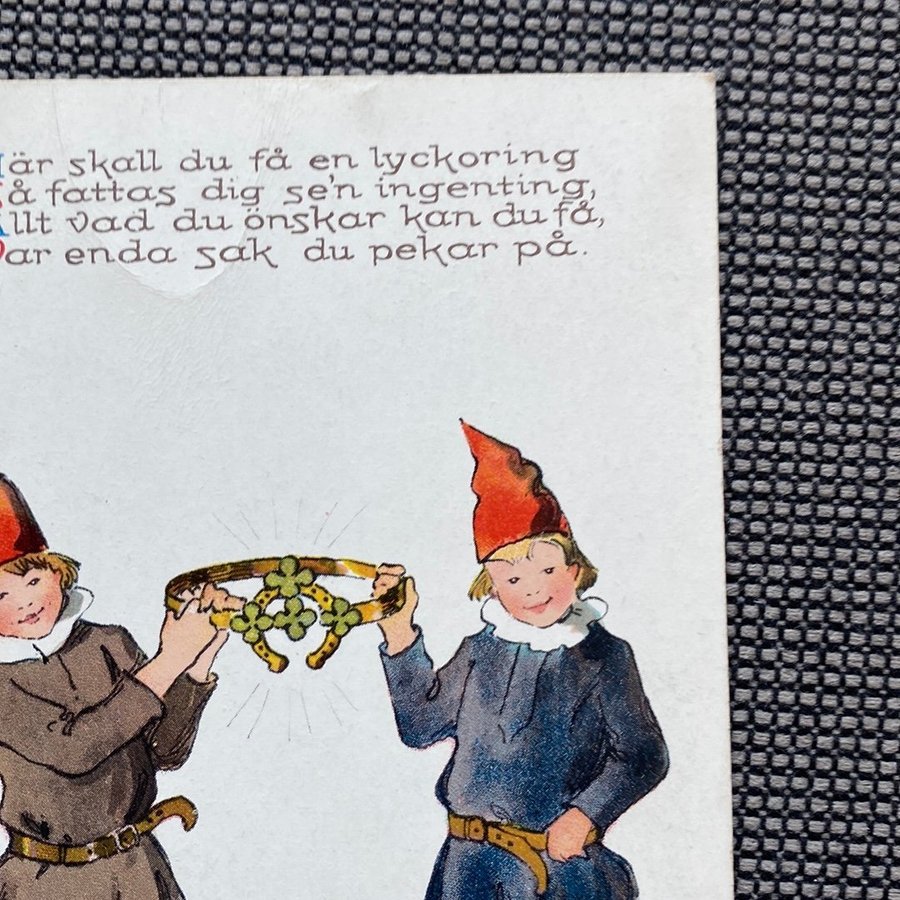 är skall du få en lyckoring
å fattas dig se'n ingenting,
llt vad du önskar kan du få,
ar enda sak du pekar på.